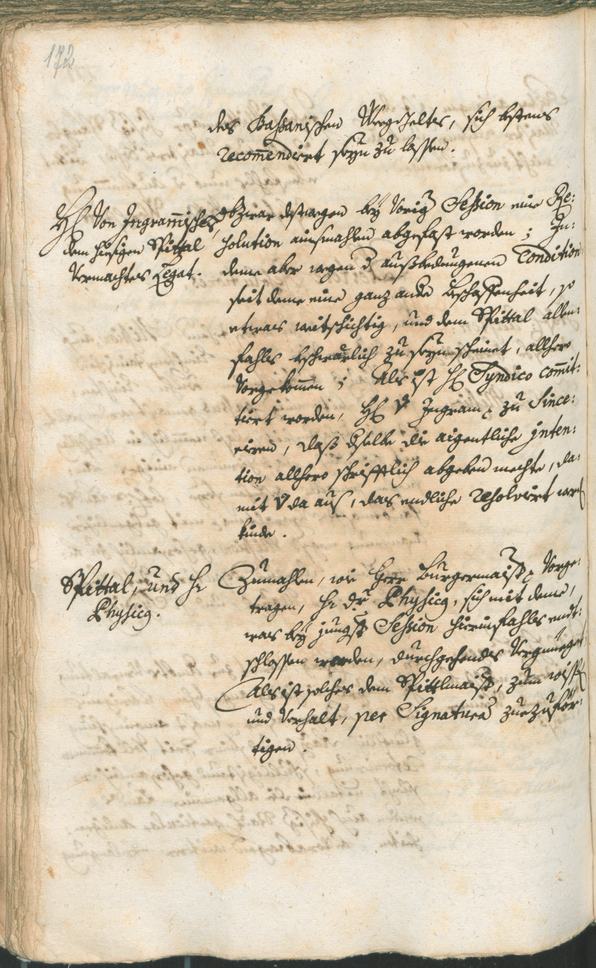 172
des Bassanischen Weegzeltes, sich bestens
recomendirt seyn zu lassen.
H: Von Ingramisches
dem hiesigen Spittal
Vermachtes Legat.
Obzwar destwegen bey Vorig Session eine Re:
solution einsmahlen abgefast worden; In:
deme aber wegen außbedungenen Condition
seit deme eine ganz andre beschaffenheit, so
etwas weitschichtig, und dem Spittal allen:
fahls beschwärlich zu seyn scheinet, allhero
Vorgekommen; Als ist H: Syndico comit:
tirt worden, H: V: Ingram zu Since:
riren, daß dselbe die aigentliche Inten:
tion allhero schrifftlich abgeben mechte, da:
mit V: da aus, das endliche resolvirt werd
kinde.
Spittal, und H:
Physicg.
Zumahlen, wie Herr Burgermaistr Vorge:
tragen, H: dr Physicg, sich mit deme,
was bey jüngst Session hierinfahls endt:
schlossen worden, durchgehendes Vergnueget
Als ist solches dem Spittlmaistr, zum wiss
und Verhalt, per Signatura zuezufer:
tigen.